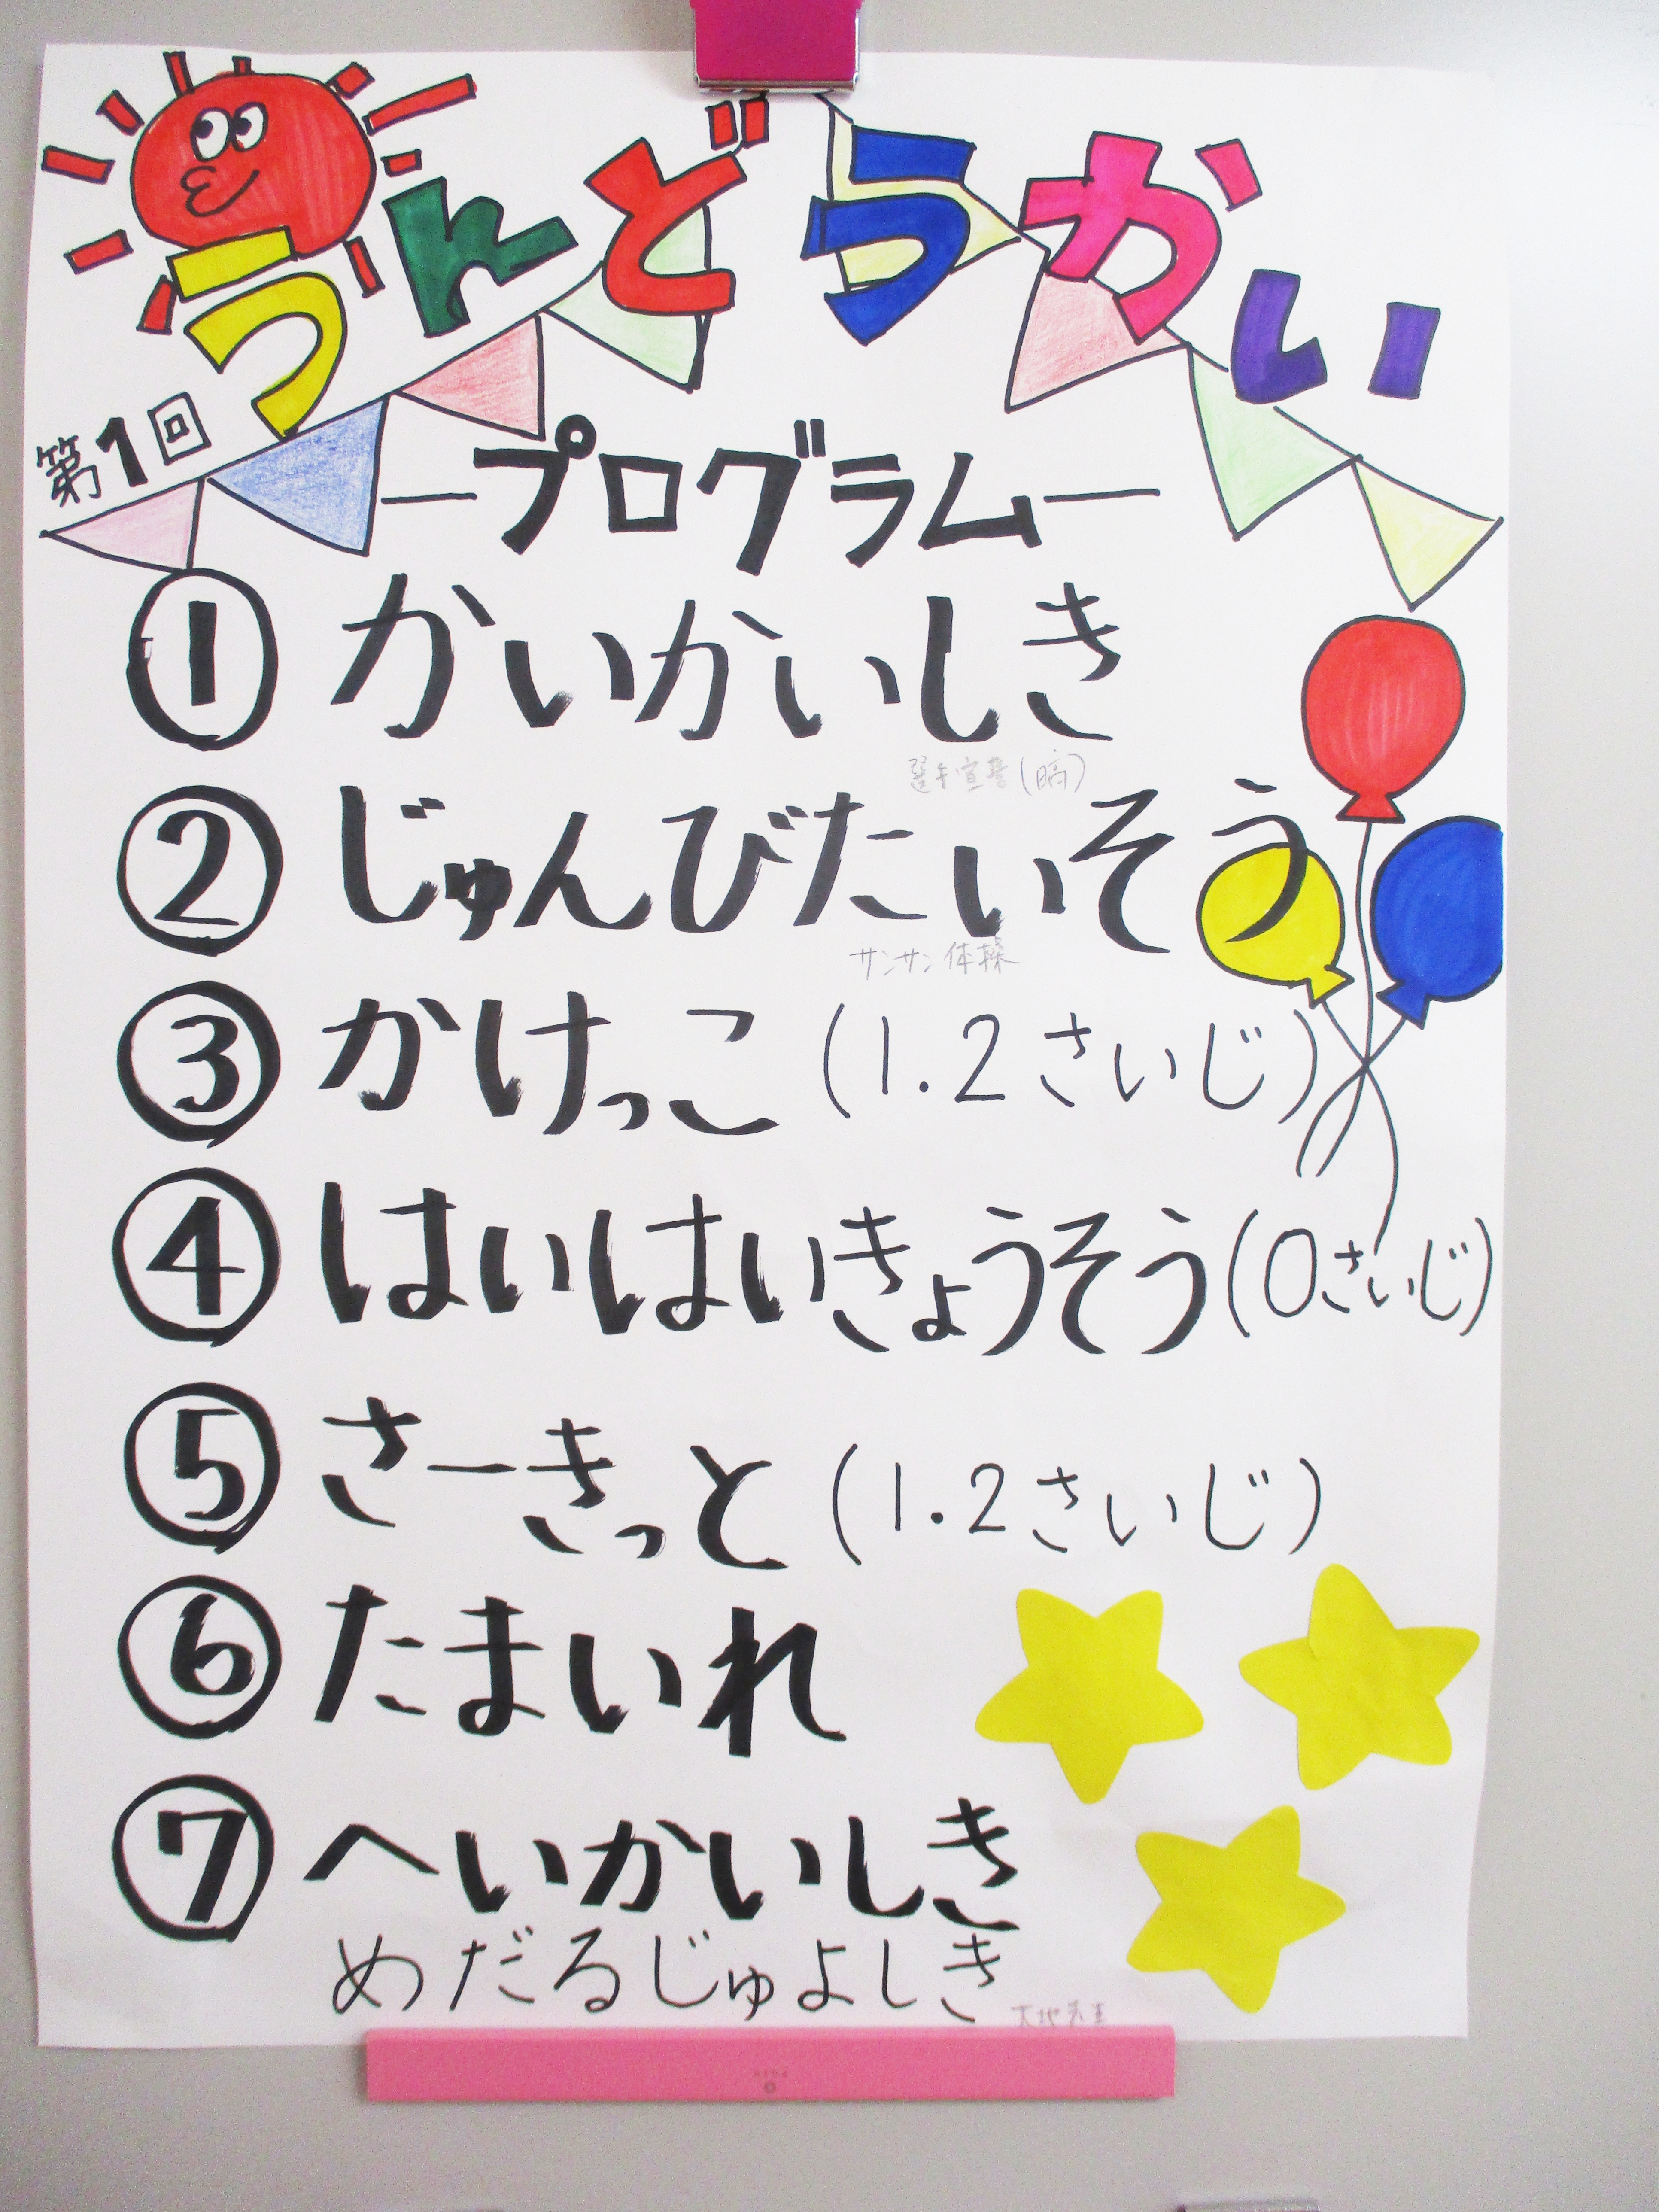 うんどうかい
第1回
―プログラム―
① かいかいしき
選手宣誓(暠)
② じゅんびたいそう
サンサン体操
③ かけっこ (1.2さいじ)
④ はいはいきょうそう(0さいじ)
⑤ さーきっと (1.2さいじ)
⑥ たまいれ
⑦ へいかいしき
めだるじゅよしき
大地先生